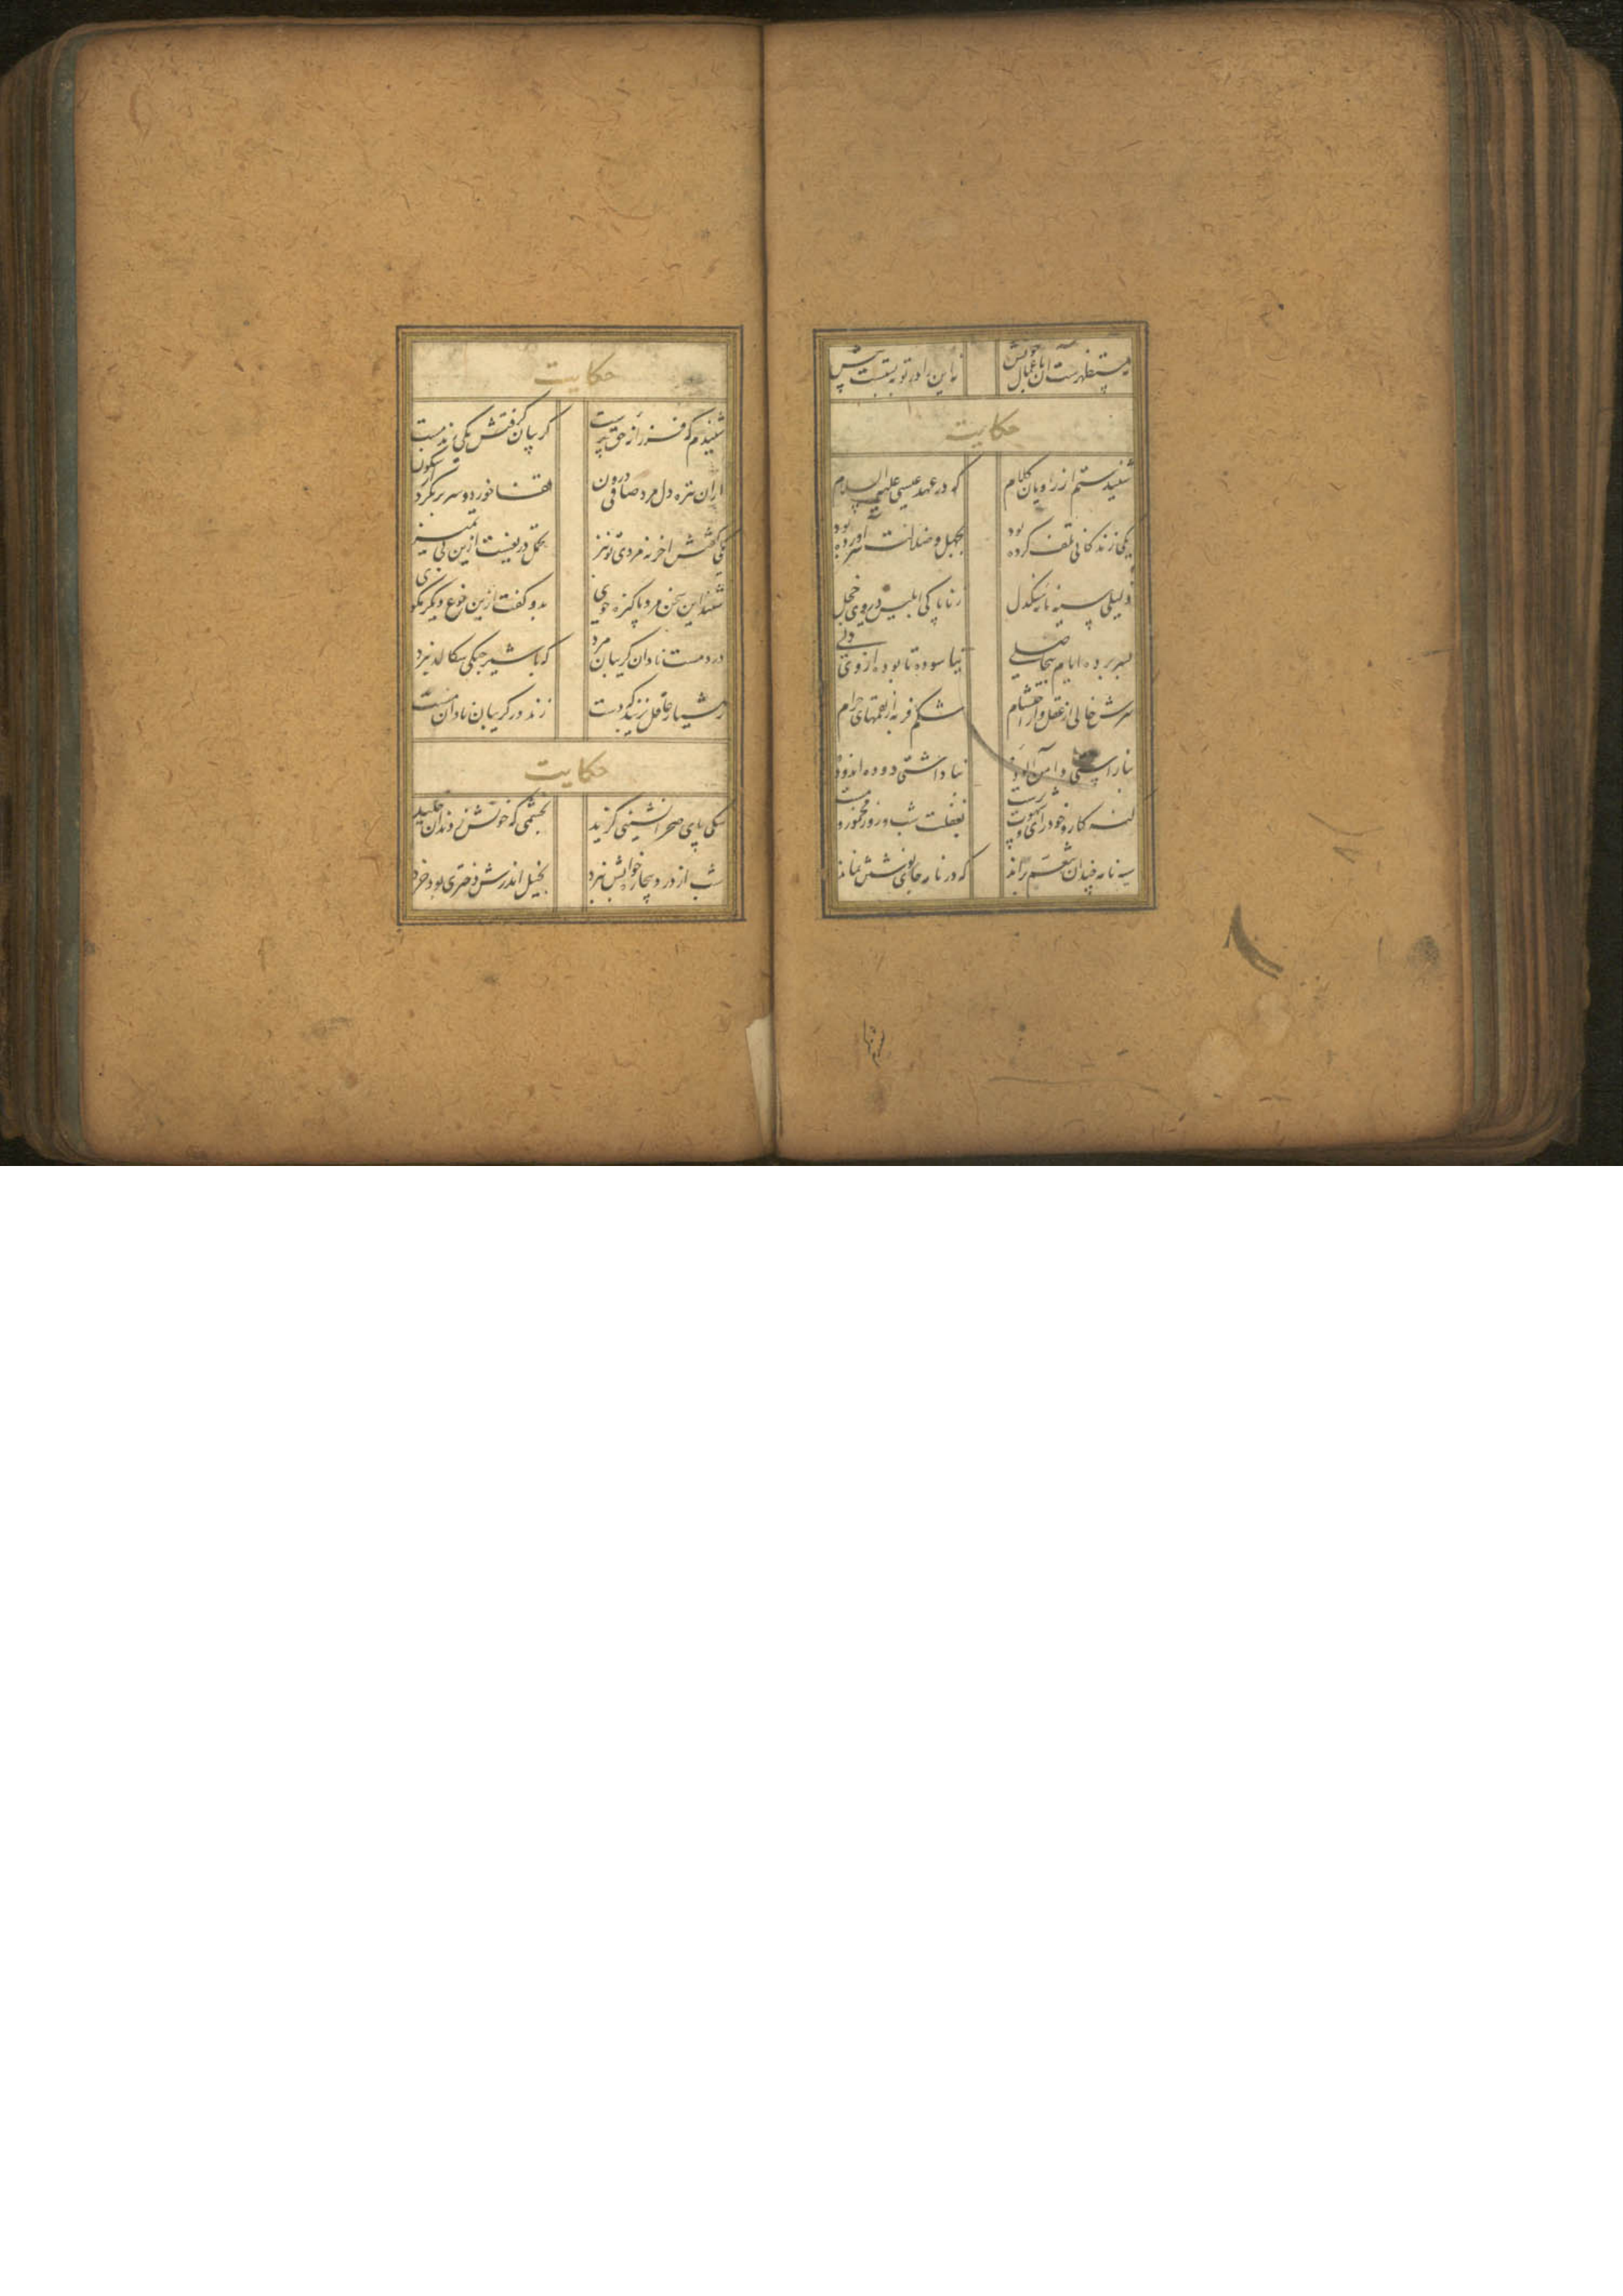 نه مستظهرست آن باعمال خویش نه این را در توبه بستست پیش
حکایت
شنیدستم از راویان کلام که در عهد عیسی علیه السلام
یکی زندگانی تلف کرده بود بجهل و ضلالت سر آورده بود
دلیری سیه نامه سنگدل ز ناپاکی ابلیس در وی خجل
بسر برده ایام بی حاصلی نیاسوده تا بوده از وی دلی
سرش خالی از عقل و از احتشام شکم فربه از لقمهای حرام
بناراستی دامن آلوده بناداشتی دوده اندوده
گنه کار و خودرای و شهوت پرست بغفلت شب و روز مخمور و مست
سیه نامه چندان تنعم براند که در نامه جای نوشتن نماند
حکایت
شنیدم که فرزانه حق پرست گریبان گرفتش یکی رند مست
از آن تیره دل مرد صافی درون قفا خورد و سر برنکرد از سکون
یکی گفتش آخر نه مردی تو نیز تحمل دریغست ازین بی تمیز
شنید این سخن مرد پاکیزه خوی بدو گفت ازین نوع دیگر مگوی
درد مست نادان گریبان مرد که با شیر جنگی سگالد نبرد
ز هشیار عاقل نزیبد که دست زند در گریبان نادان مست
حکایت
سگی پای صحرانشینی گزید بخشمی که خونش ز دندان چکید
شب از درد بیچاره خوابش نبرد بخیل اندرش دختری بود خرد